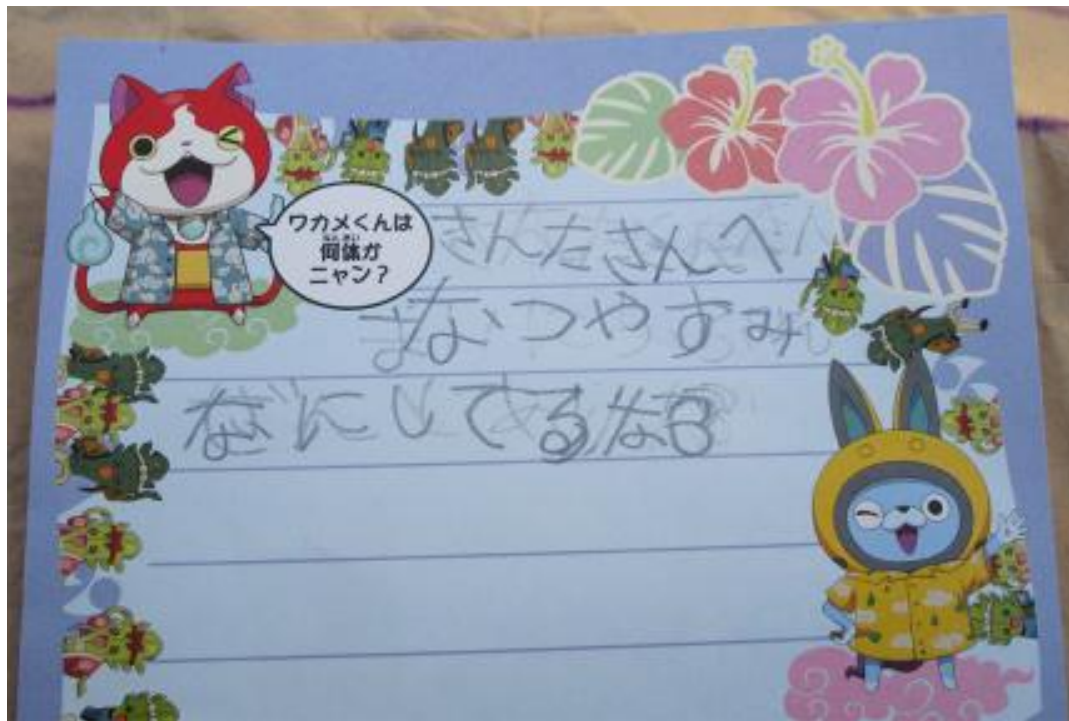 ワカメくんは
なんたい
何体か
ニャン？
さんたさんへ
なつやすみ
なにしてるな